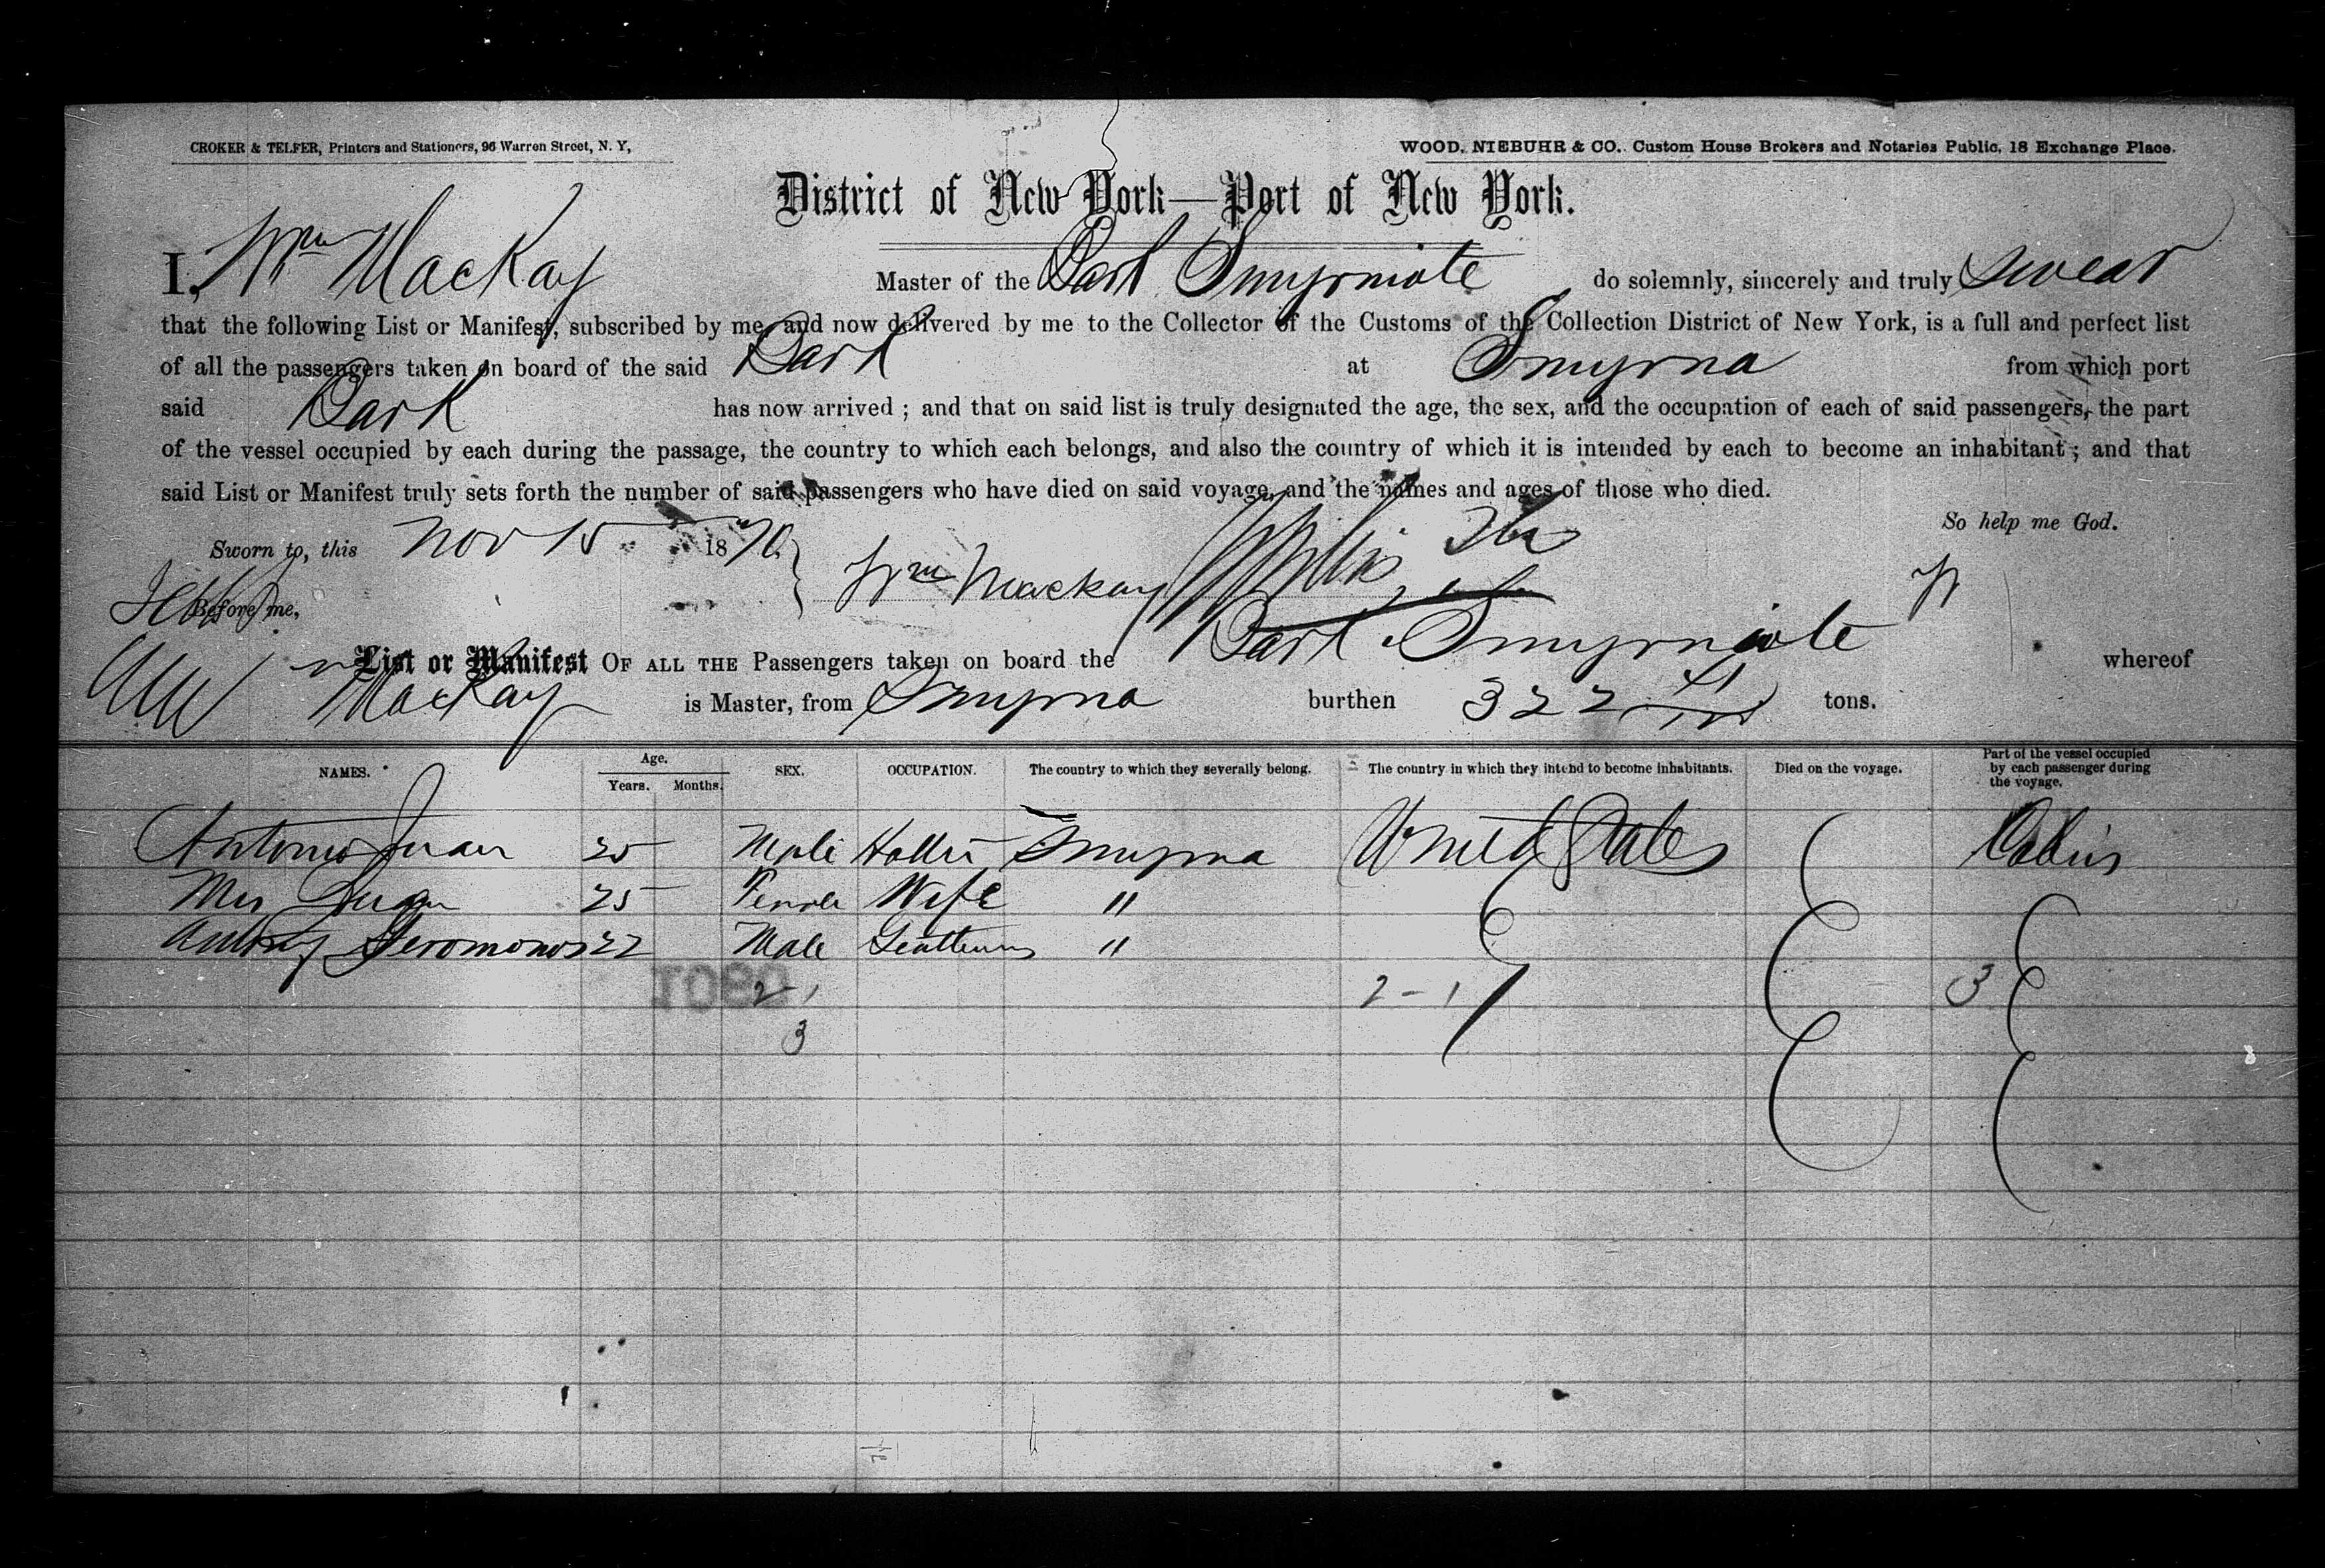 CROKER & TELFER, Printers and Stationers, 96 Warren Street, N. Y,
WOOD, NIEBUHR & CO. Custom House Brokers and Notaries Public, 18 Exchange Place.
District of New York—Port of New York.
I, Wm MacKay Master of the Bark Smyrniote do solemnly, sincerely and truly swear
that the following List or Manifest, subscribed by me, and now delivered by me to the Collector of the Customs of the Collection District of New York, is a full and perfect list
of all the passengers taken on board of the said Bark at Smyrna from which port
said Bark has now arrived ; and that on said list is truly designated the age, the sex, and the occupation of each of said passengers, the part
of the vessel occupied by each during the passage, the country to which each belongs, and also the country of which it is intended by each to become an inhabitant ; and that
said List or Manifest truly sets forth the number of said passengers who have died on said voyage, and the names and ages of those who died.
So help me God.
Sworn to, this Nov 15 1870.
Wm Mackay
Before me,
List or Manifest OF ALL THE Passengers taken on board the Bark Smyrniote whereof
MacKay is Master, from Smyrna burthen 322 tons.
NAMES. Age. Years. Months. SEX. OCCUPATION. The country to which they severally belong. The country in which they intend to become inhabitants. Died on the voyage. Part of the vessel occupied by each passenger during the voyage.
Antonio Juan 25 Male Smyrna United States Cabin
Mrs Juan 25 Female Wife "
Antony 22 Male "
2 - 1 2 - 1 3
3